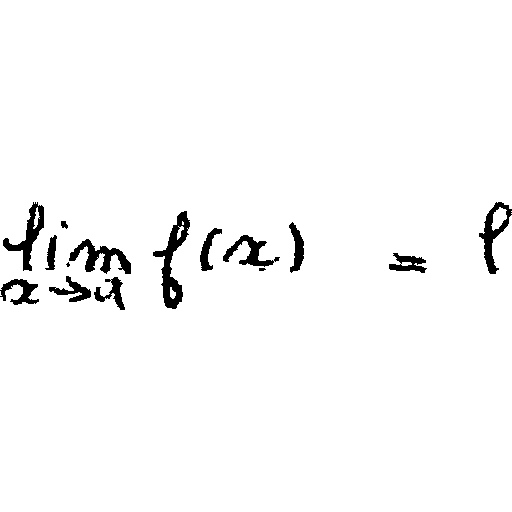 lim x→a f(x) = l